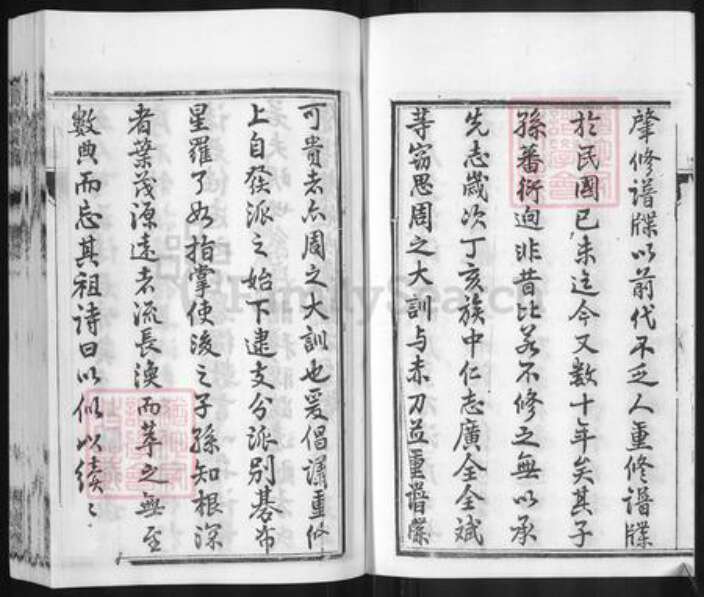 肇修譜牒以前代不乏人重修譜牒
於民國已未迄今又數十年矣其子
孫蕃衍逈非昔比若不修之無以承
先志歲次丁亥族中仁志廣全全斌
等窃思周之大訓与赤刀並重譜牒
可貴者亦周之大訓也爰倡議重修
上自發派之始下逮支分派別碁布
星羅了如指掌使後之子孫知根深
者葉茂源遠者流長渙而萃之無至
數典而忘其祖詩曰以似以續
FamilySearch